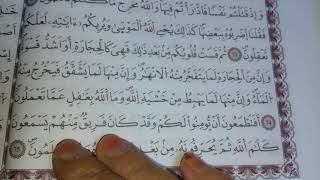 وَإِذْ قَتَلْتُمْ نَفْسًا فَادَّارَأْتُمْ فِيهَا وَاللَّهُ مُخْرِجٌ مَا كُنْتُمْ
فَقُلْنَا اضْرِبُوهُ بِبَعْضِهَا كَذَلِكَ يُحْيِي اللَّهُ الْمَوْتَى وَيُرِيكُمْ آيَاتِهِ لَعَلَّكُمْ
تَعْقِلُونَ ثُمَّ قَسَتْ قُلُوبُكُمْ مِنْ بَعْدِ ذَلِكَ فَهِيَ كَالْحِجَارَةِ أَوْ أَشَدُّ قَسْوَةً
وَإِنَّ مِنَ الْحِجَارَةِ لَمَا يَتَفَجَّرُ مِنْهُ الْأَنْهَارُ وَإِنَّ مِنْهَا لَمَا يَشَّقَّقُ فَيَخْرُجُ مِنْهُ
الْمَاءُ وَإِنَّ مِنْهَا لَمَا يَهْبِطُ مِنْ خَشْيَةِ اللَّهِ وَمَا اللَّهُ بِغَافِلٍ عَمَّا تَعْمَلُونَ
أَفَتَطْمَعُونَ أَنْ يُؤْمِنُوا لَكُمْ وَقَدْ كَانَ فَرِيقٌ مِنْهُمْ يَسْمَعُونَ
كَلَامَ اللَّهِ ثُمَّ يُحَرِّفُونَهُ مِنْ بَعْدِ